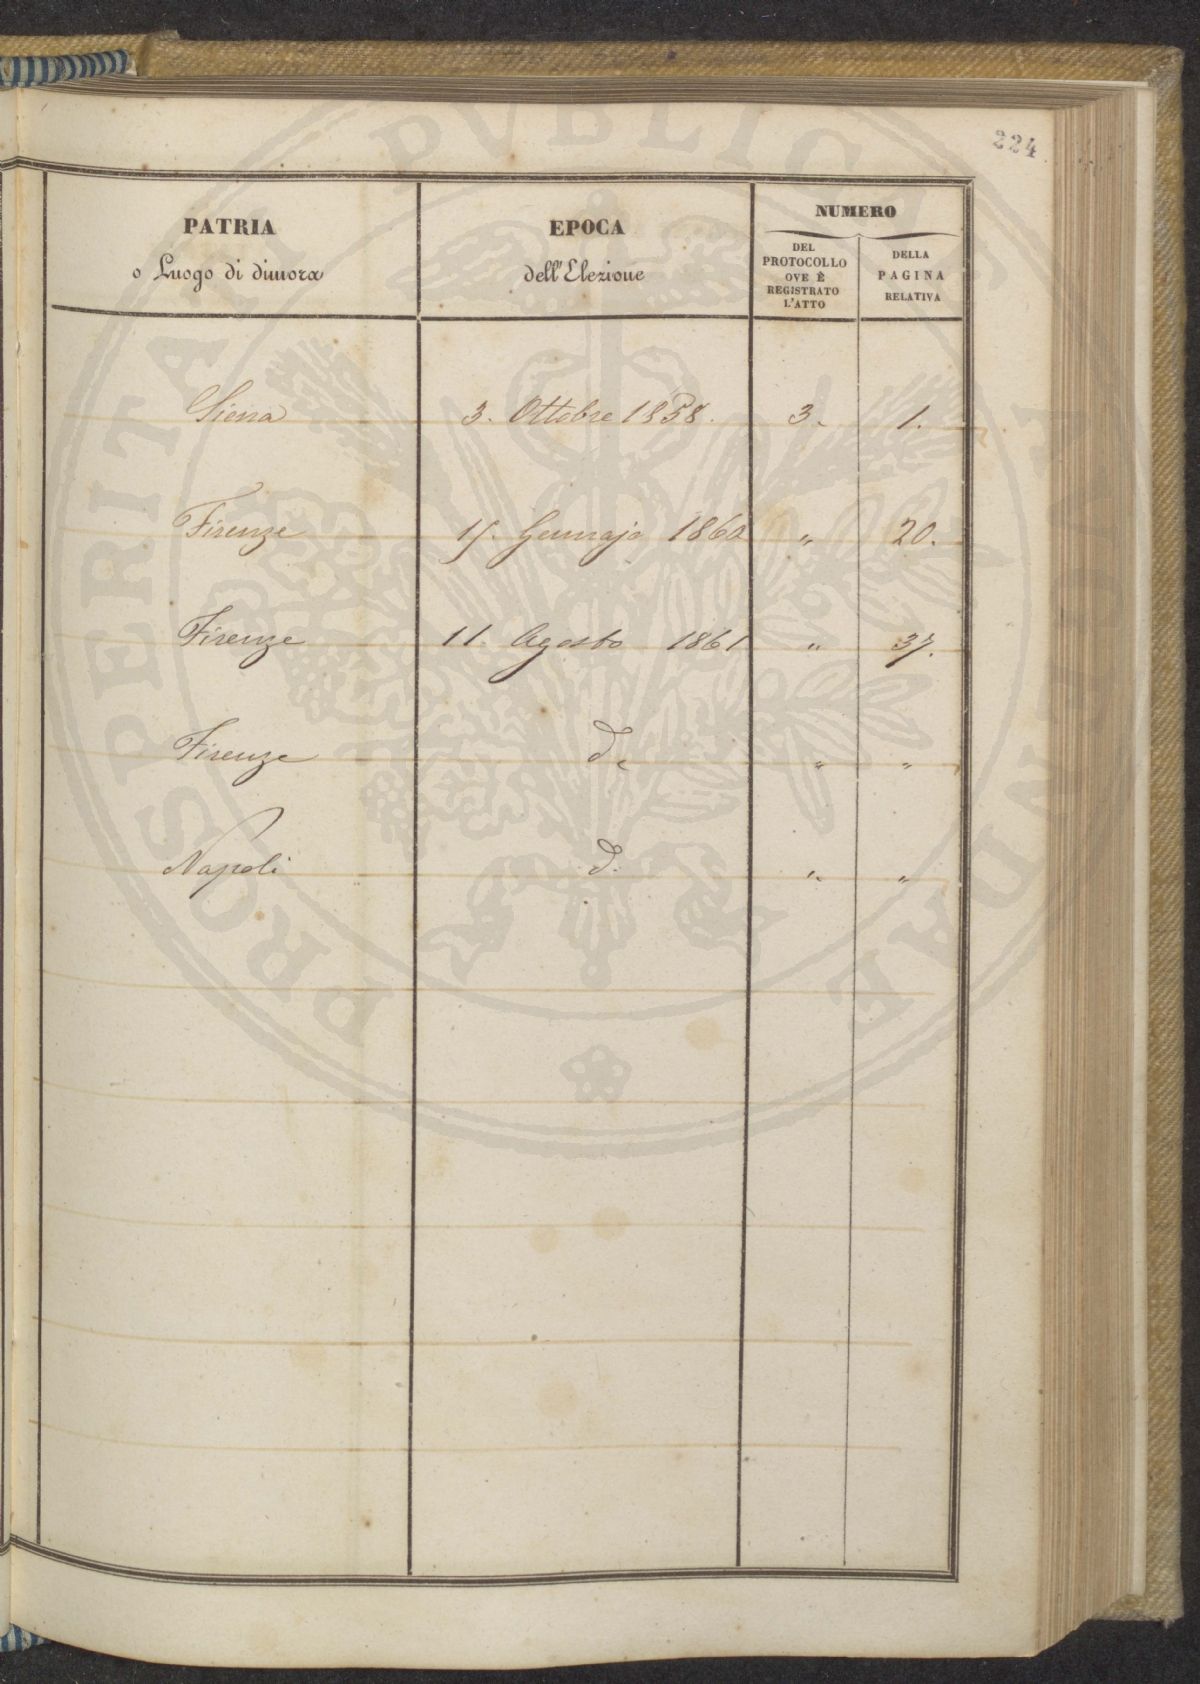 224
PATRIA
o Luogo di dimora
EPOCA
dell'Elezione
NUMERO
DEL
PROTOCOLLO
OVE È
REGISTRATO
L'ATTO
DELLA
PAGINA
RELATIVA
Siena 3. Ottobre 1858. 3. 1.
Firenze 15. Gennajo 1860 " 20.
Firenze 11. Agosto 1861 " 37.
Firenze d. " "
Napoli d. " "
PROSPERITATI PVBLICAE